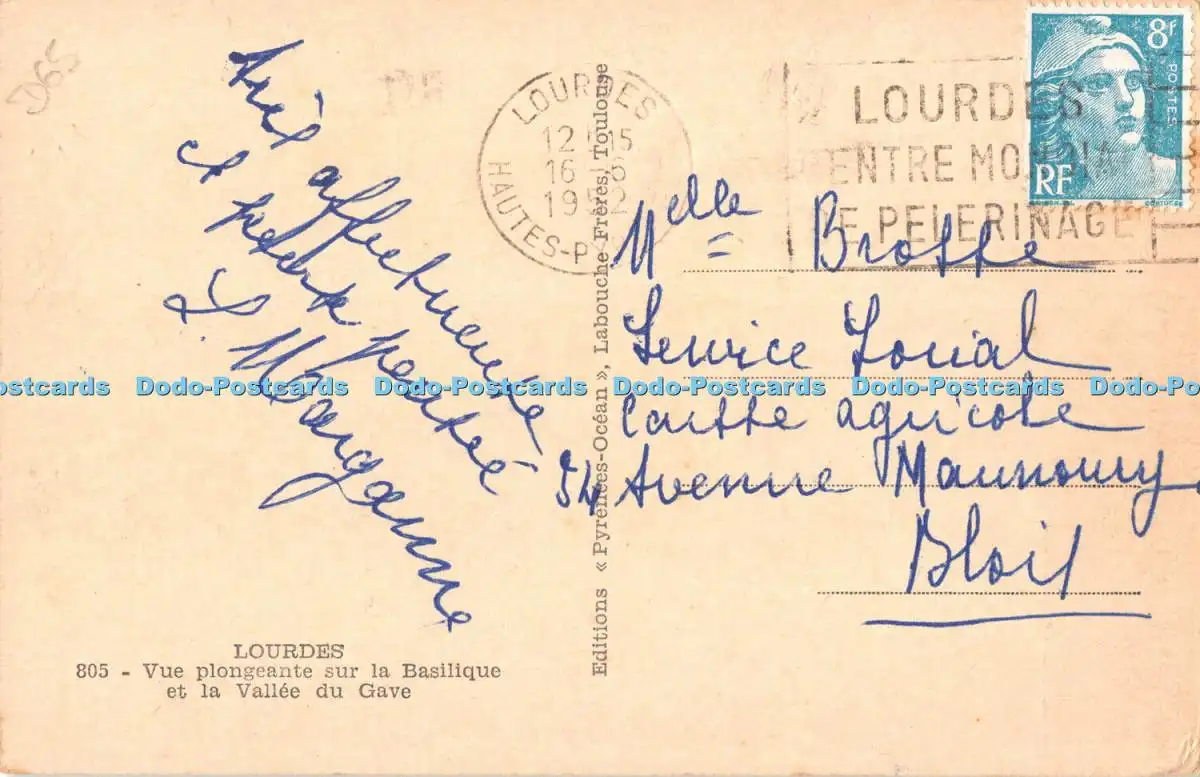 D65
Très affectueuse
et
pensée
L. Morganne
LOURDES
805 - Vue plongeante sur la Basilique
et la Vallée du Gave
Editions « Pyrénées-Océan », Labouche Frères, Toulouse
LOURDES
12 15
16
HAUTES-P
LOURDES
ENTRE MONDIA
E PELERINAGE
8f
POSTES
RF
Melle Brosse
Service Social
Caisse agricole
54 Avenue Maunoury
Blois
Dodo-Postcards Dodo-Postcards Dodo-Postcards Dodo-Postcards Dodo-Postcards